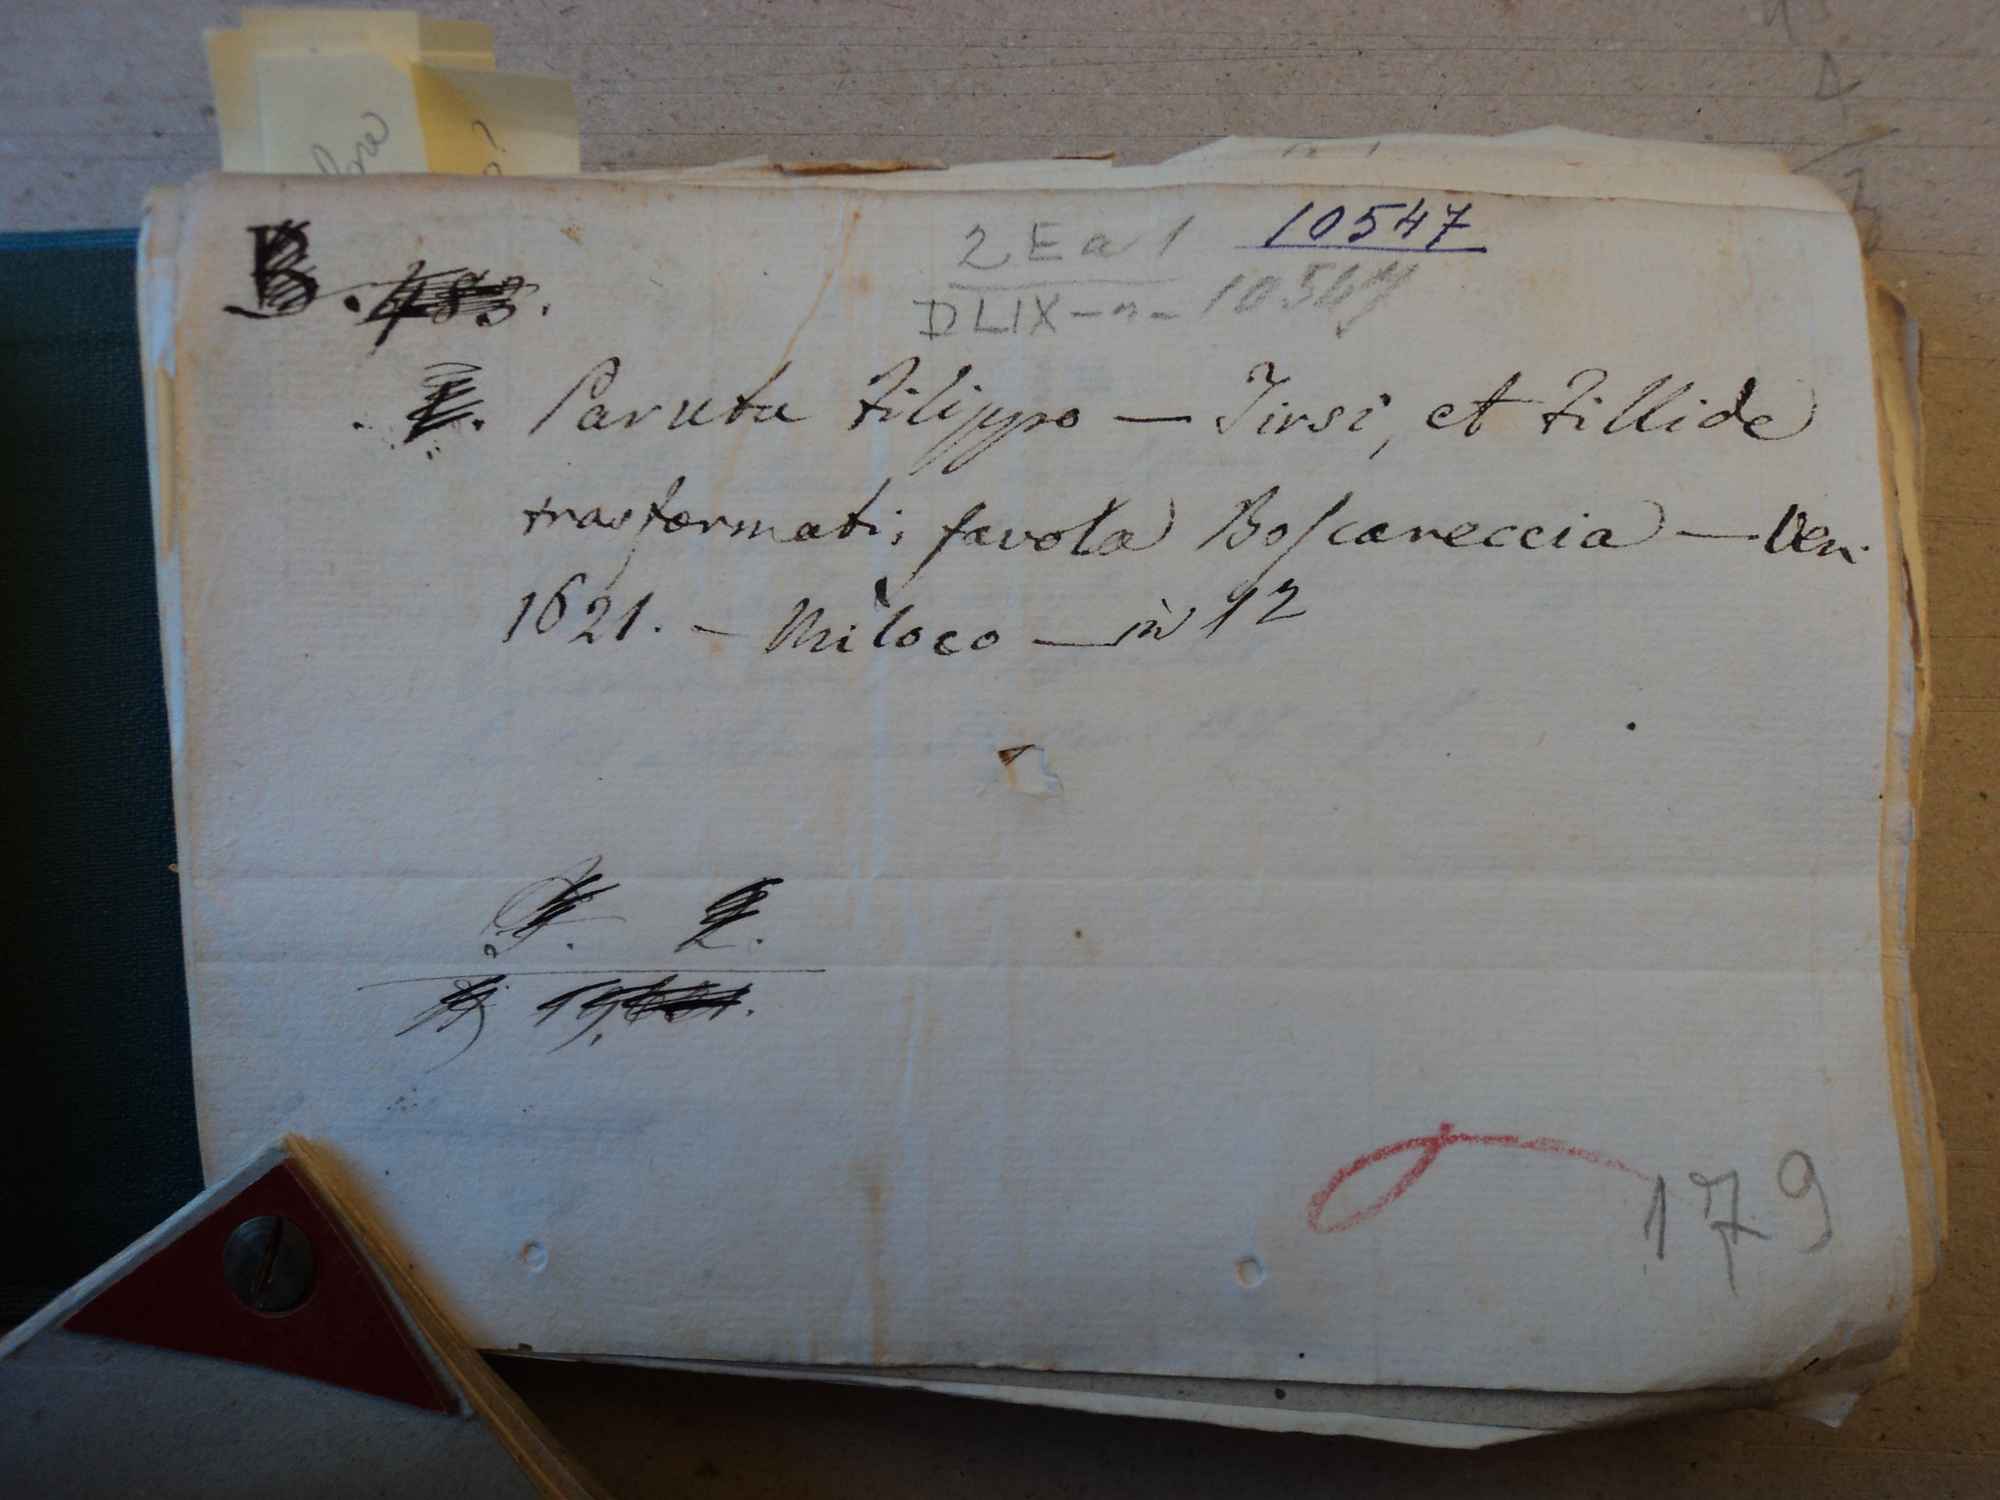 2 E a 1 10547
B. 483.
DLIX-n- 10547
Paruta Filippo — Tirsi, et Fillide
trasformati, favola Boscareccia — Ven.
1621. — Miloco — in 12
179